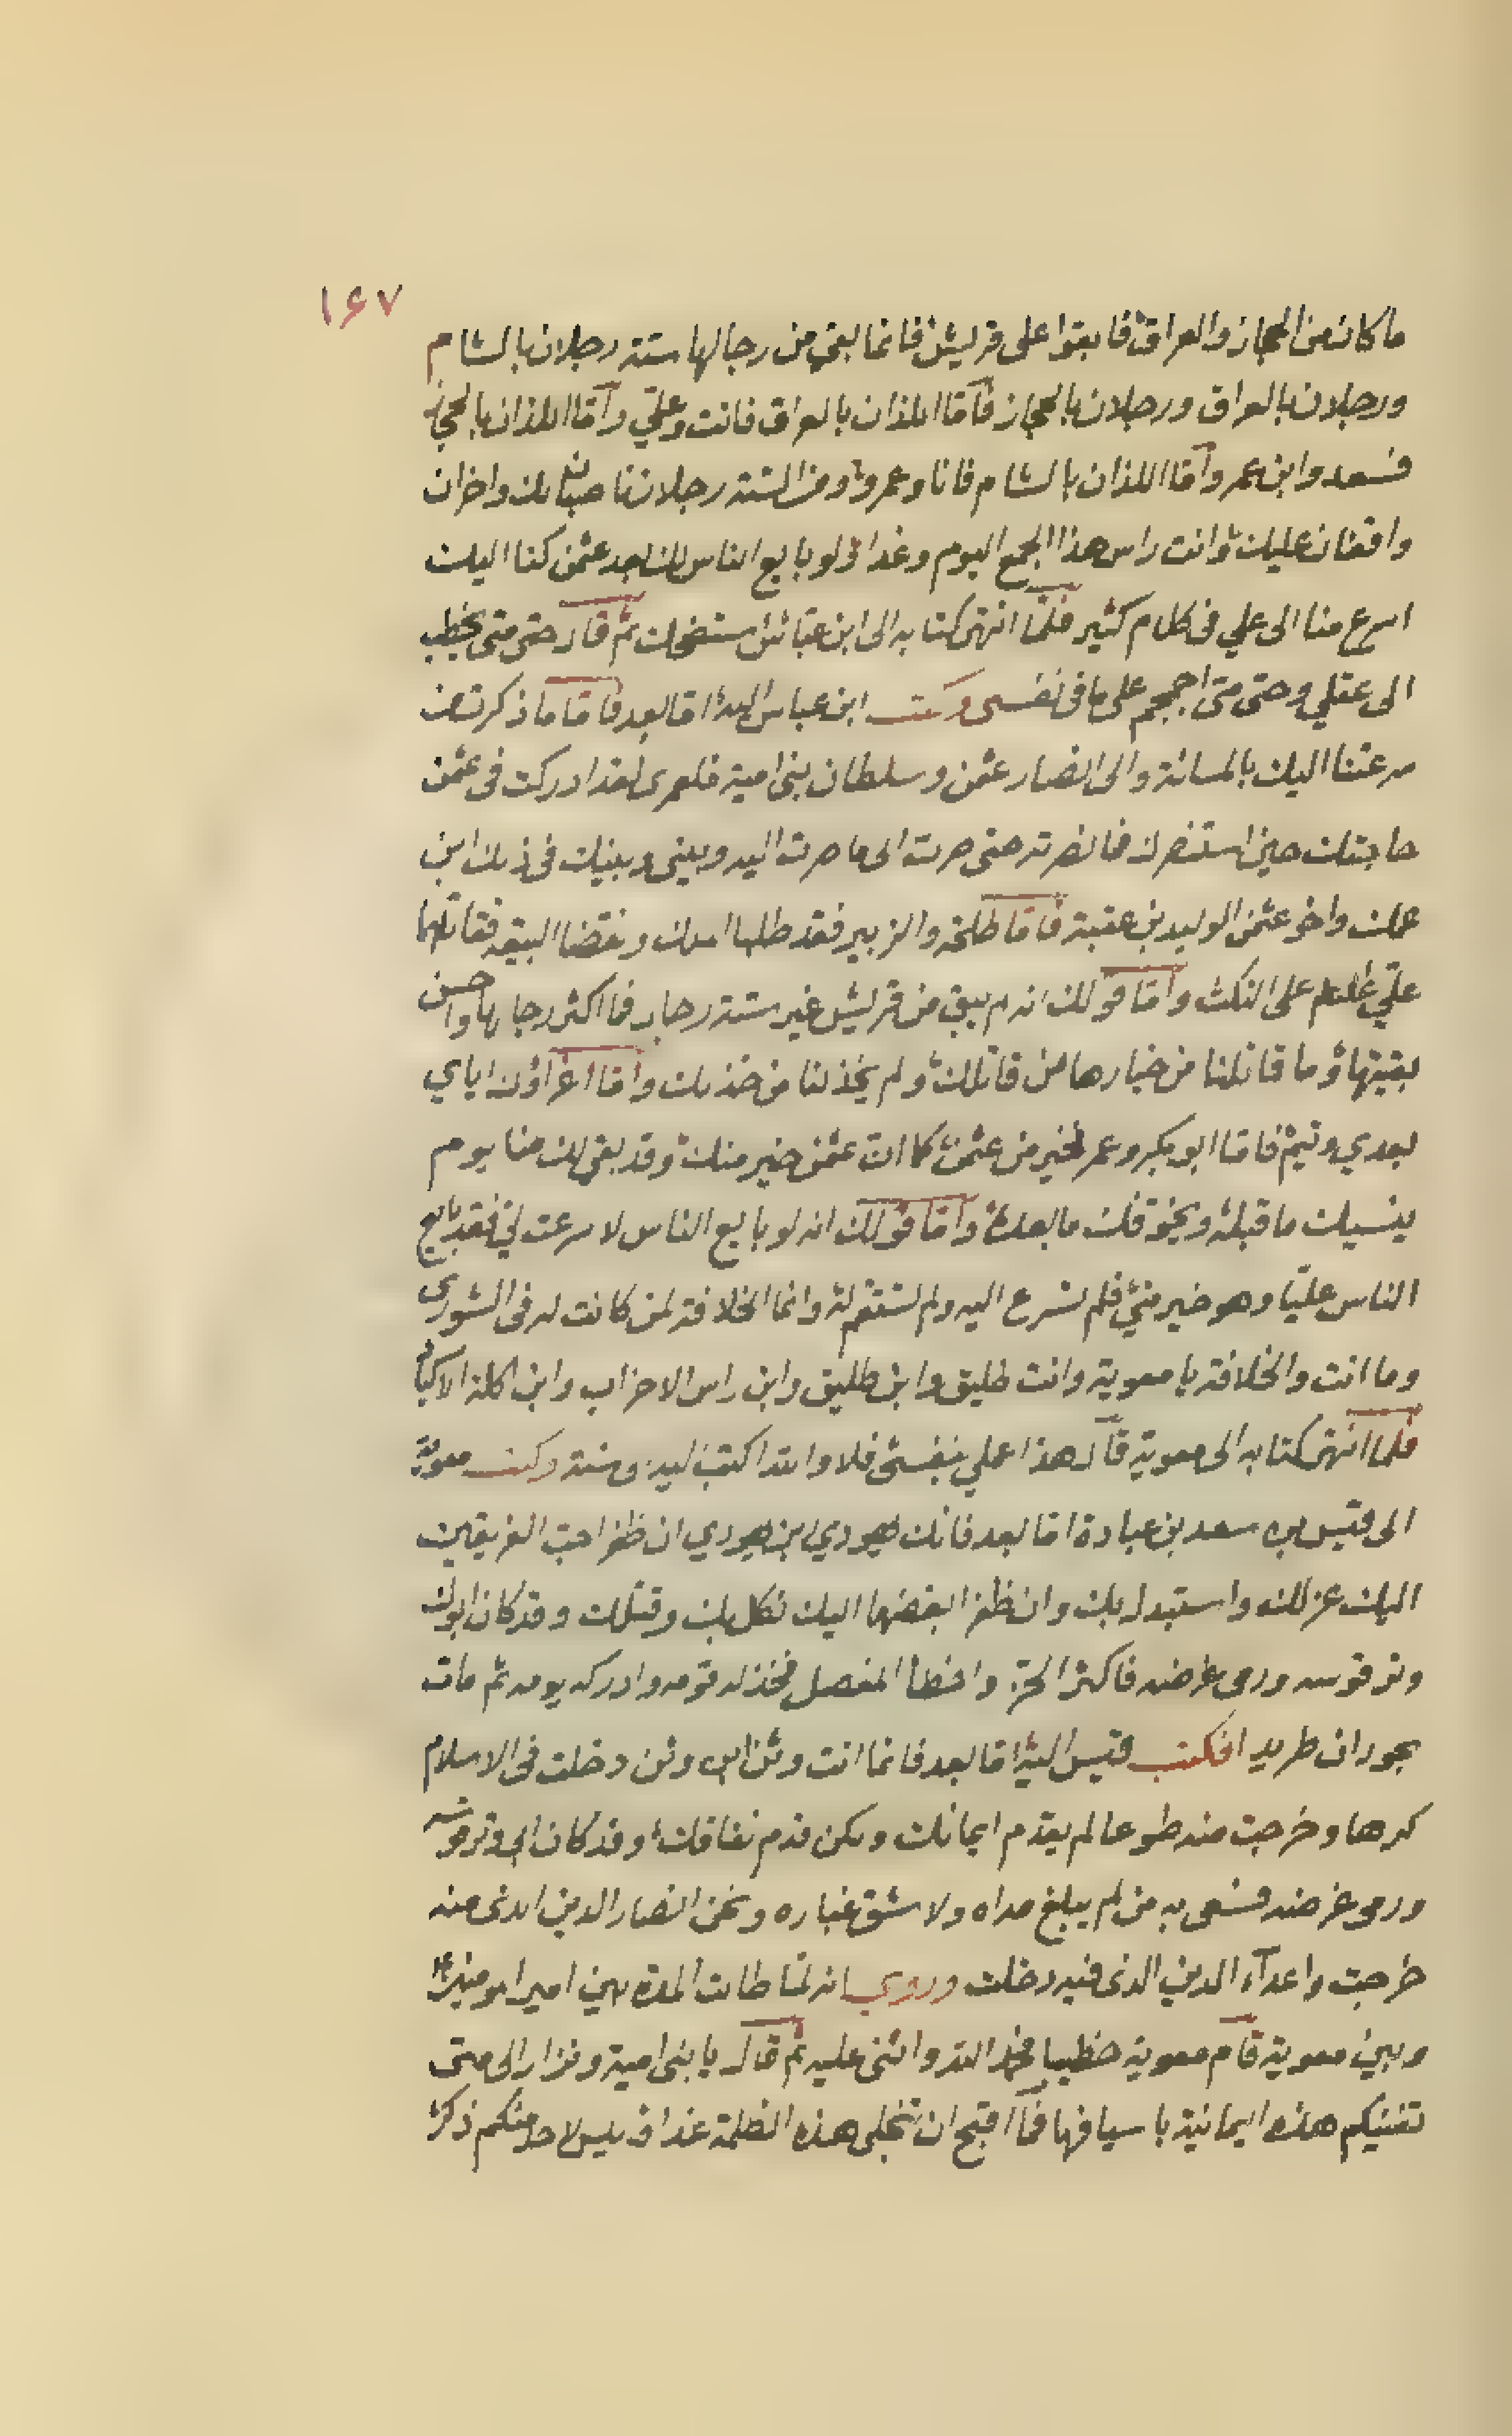 ١٤٧
ما كان من الحجاز والعراق فابقوا على قريش فانما بقي من رجالها ستة رجلان بالشام
ورجلان بالعراق ورجلان بالحجاز فأما اللذان بالعراق فانت وعلي وأما اللذان بالحجاز
فسعد وابن عمر وأما اللذان بالشام فانا وعمرو ومن الستة رجلان ناصبان لك واخران
واقفان عليك وانت راس هذا الجمع اليوم وغدا ولو بايع الناس لك بعد عثمن كنا اليك
اسرع منا الى علي في كلام كثير فلما انتهى كتابه الى ابن عباس استضحك ثم قال حتى متى يخطب
الى عقلي وحتى متى احمجم على ما في نفسي وكتب ابن عباس اليه اما بعد فاما ما ذكرت من
سرعتنا اليك بالمسائة والى انصار عثمن وسلطان بني امية فلعمري لقد ادركت في عثمن
حاجتك حين استنصرك فما نصرته حتى صرت الى ما صرت اليه وبيني وبينك في ذلك ابن
عمك واخو عثمن الوليد بن عقبة فاما طلحة والزبير فقد طلبا الملك ونقضا البيعة فقاتلهما
علي على النكث وأما قولك انه لم يبق من قريش غير ستة رجال فما اكثر رجالها واحسن
بقيتها وما قاتلنا من خيارها من قاتلك ولم يخذلنا من خذلك وأما اغراؤك اياي
بعدي وتيم فاما ابو بكر وعمر لخير من عثمن كما ان عثمن خير منك وقد بقي لك منا يوم
ينسيك ما قبله ويخوفك ما بعده وأما قولك انه لو بايع الناس لاسرعت لي فقد بايع
الناس عليا وهو خير مني فلم تسرع اليه ولم تستقم له وانما الخلافة لمن كانت له في الشورى
وما انت والخلافة يا معوية وانت طليق وابن طليق وابن راس الاحزاب وابن اكلة الاكباد
فلما انتهى كتابه الى معوية قال هذا عملي بنفسي فلا والله اكتب اليه سنة وكتب معوية
الى قيس بن سعد بن عبادة اما بعد فانك يهودي ابن يهودي ان ظفر احب الفريقين
اليك عزلك واستبدل بك وان ظفر ابغضهما اليك نكل بك وقتلك وقد كان ابوك
وتر قوسه ورمى غرضه فاكثر الحز واخطأ المفصل فخذله قومه وادركه يومه ثم مات
بحوران طريدا فكتب قيس اليه اما بعد فانما انت وثن ابن وثن دخلت في الاسلام
كرها وخرجت منه طوعا لم يقدم ايمانك ولكن قدم نفاقك وقد كان ابي وتر قوسه
ورمى غرضه فسعى به من لم يبلغ مداه ولا شق غباره ونحن انصار الدين الذي منه
خرجت واعداء الدين الذي فيه دخلت وروي انه لما طالت المدة بين امير المومنين
وبين معوية قام معوية خطيبا فحمد الله واثنى عليه ثم قال يا بني امية ونزار الى متى
تفنيكم هذه اليمانية باسيافها فما اقبح ان تنجلي هذه الظلمة غدا وليس لاحد منكم ذكر